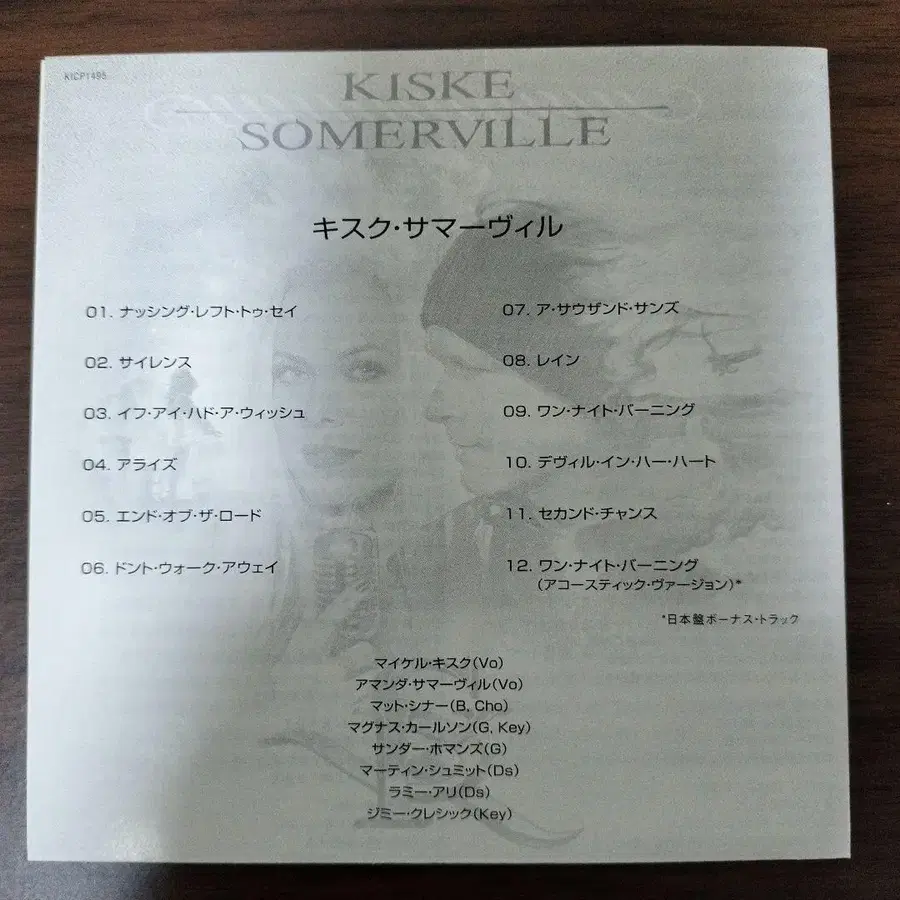 KICP1495
KISKE
SOMERVILLE
キスク・サマーヴィル
01. ナッシング・レフト・トゥ・セイ
02. サイレンス
03. イフ・アイ・ハド・ア・ウィッシュ
04. アライズ
05. エンド・オブ・ザ・ロード
06. ドント・ウォーク・アウェイ
07. ア・サウザンド・サンズ
08. レイン
09. ワン・ナイト・バーニング
10. デヴィル・イン・ハー・ハート
11. セカンド・チャンス
12. ワン・ナイト・バーニング
(アコースティック・ヴァージョン)*
*日本盤ボーナス・トラック
マイケル・キスク(Vo)
アマンダ・サマーヴィル(Vo)
マット・シナー(B, Cho)
マグナス・カールソン(G, Key)
サンダー・ホマンズ(G)
マーティン・シュミット(Ds)
ラミー・アリ(Ds)
ジミー・クレシック(Key)